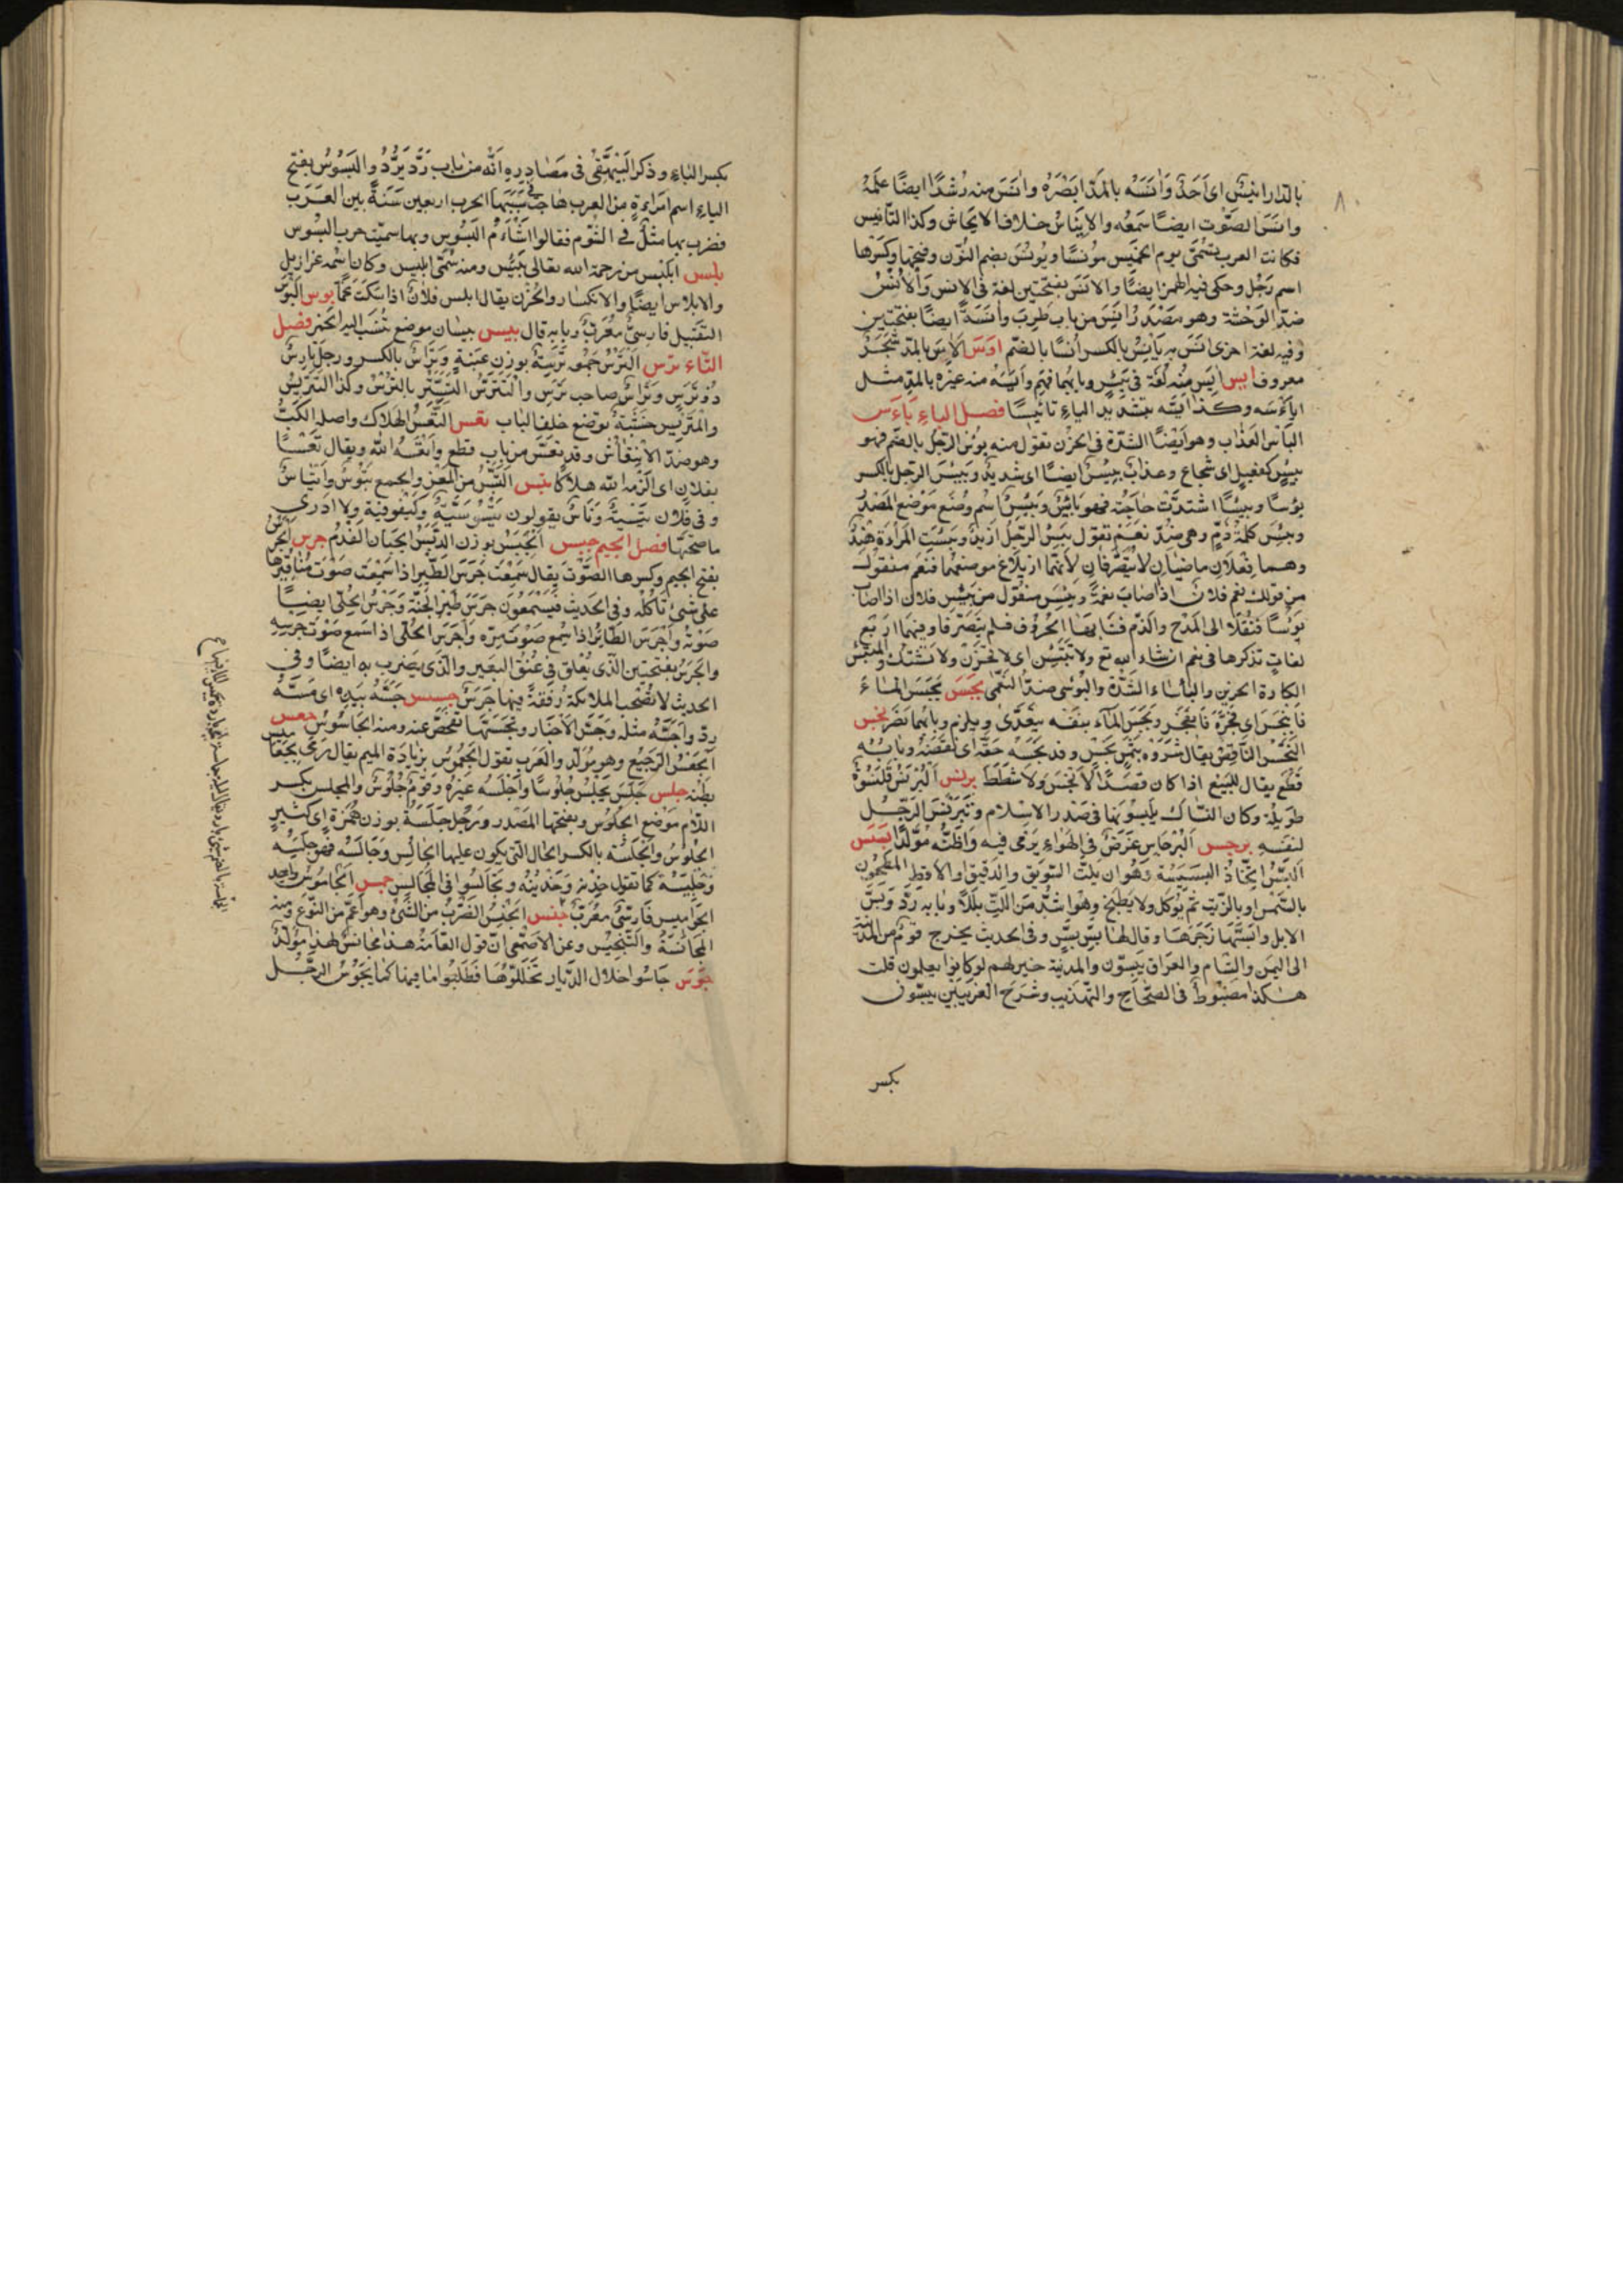 بالدار انيس اى احد وآنسه بالمد ابصره وآنس منه رشدا ايضا علمه
وآنس الصوت ايضا سمعه والايناس خلاف الايحاش وكذا التأنيس
وكانت العرب تسمى يوم الخميس مونسا ويونس بضم النون وفتحها وكسرها
اسم رجل وحكى فيه الهمز ايضا والانس بفتحتين لغة فى الانس والانس
ضد الوحشة وهو مصدر انس من باب طرب وانسة ايضا بفتحتين
وفيه لغة اخرى انس به يأنس بالكسر انسا بالضم اوس الاس بالمد شجر
معروف ايس ايس منه لغة فى يئس وبابهما فهم وآيسه منه غيره بالمد مثل
ايأسه وكذا ايسه بتشديد الياء تأييسا فصل الباء بأس
البأس العذاب وهو ايضا الشدة فى الحزن تقول منه بؤس الرجل بالضم فهو
بئيس كفعيل اى شجاع وعذاب بئيس ايضا اى شديد وبئس الرجل بالكسر
بؤسا وبئيسا اشتدت حاجته فهو بائس وبئيس اسم وضع موضع المصدر
وبئس كلمة ذم وهى ضد نعم تقول بئس الرجل زيد وبئست المراءة هند
وهما فعلان ماضيان لا يتصرفان لانهما ازيلا عن موضعهما فنعم منقول
من قولك نعم فلان اذا اصاب نعمة وبئس منقول من بئس فلان اذا اصاب
بؤسا فنقلا الى المدح والذم فشابها الحروف فلم يتصرفا وفيهما اربع
لغات تذكرها فى نعم ان شاء الله تع ولا تبتئس اى لا تحزن ولا تشتك والمبتئس
الكاره الحزين والباساء الشدة والبؤسى ضد النعمى بجس بجس الماء
فانبجس اى فجره فانفجر وبجس الماء بنفسه يتعدى ويلزم وبابهما نصر بخس
البخس الناقص يقال شروه بثمن بخس وقد بخسه حقه اى نقصه وبابه
قطع يقال للبيع اذا كان قصدا لا بخس ولا شطط برنس البرنس قلنسوة
طويلة وكان النساك يلبسونها فى صدر الاسلام وتبرنس الرجل
لبسه برجس البرجاس غرض فى الهواء يرمى فيه واظنه مولدا بسس
البس اتخاذ البسيسة وهو ان يلت السويق والدقيق او الاقط المطحون
بالسمن او بالزيت ثم يؤكل ولا يطبخ وهو اشد من اللت بللا وبابه رد وبس
الابل وابسها زجرها وقال لها بس بس وفى الحديث يخرج قوم من المدينة
الى اليمن والشام والعراق يبسون والمدينة خير لهم لو كانوا يعلمون قلت
هكذا مضبوط فى الصحاح والتهذيب وشرح الغريبين يبسون
بكسر
بكسر الباء وذكر البيهقى فى مصادره انه من باب رد يرد والبسوس بفتح
الباء اسم امراءة من العرب هاجت بسببها الحرب اربعين سنة بين العرب
فضرب بها مثل فى الشوم فقالوا اشأم من البسوس وبها سميت حرب البسوس
بلس ابلس من رحمة الله تعالى يئس ومنه سمى ابليس وكان اسمه عزازيل
والابلاس ايضا الانكسار والحزن يقال ابلس فلان اذا سكت غما بوس البوس
التقبيل فارسى معرب وبابه قال بيس بيسان موضع تنسب اليه الخمر فصل
التاء ترس الترس جمعه ترسة بوزن عنبة وتراس بالكسر ورجل تارس
ذو ترس وتراس صاحب ترس والتترس التستر بالترس وكذا التتريس
والمتريس خشبة توضع خلف الباب تعس التعس الهلاك واصله الكب
وهو ضد الانتعاش وقد تعس من باب قطع واتعسه الله ويقال تعسا
لفلان اى الزمه الله هلاكا تيس التيس من المعز والجمع تيوس واتياس
وفى فلان تيسية وناس يقولون تيسوسية وكيفوفية ولا ادرى
ما صحتها فصل الجيم جبس الجبس بوزن الدبس الجبان الفدم جرس الجرس
بفتح الجيم وكسرها الصوت يقال سمعت جرس الطير اذا سمعت صوت مناقيرها
على شئ تأكله وفى الحديث فيسمعون جرس طير الجنة وجرس الحلى ايضا
صوته واجرس الطائر اذا سمع صوت مره واجرس الحلى اذا سمع صوت جرسه
والجرس بفتحتين الذى يعلق فى عنق البعير والذى يضرب به ايضا وفى
الحديث لا تصحب الملائكة رفقة فيها جرس جسس جسه بيده اى مسه
رد واجتسه مثله وجس الاخبار وتجسسها تفحص عنه ومنه الجاسوس جعس
الجعس الرجيع وهو مولد والعرب تقول الجعموس بزيادة الميم يقال رمى بجعاميس
بطنه جلس جلس يجلس جلوسا واجلسه غيره وقوم جلوس والمجلس بكسر
اللام موضع الجلوس وبفتحها المصدر ورجل جلسة بوزن همزة اى كثير
الجلوس والجلسة بالكسر الحال التى يكون عليها الجالس وجالسه فهو جليسه
وجلسه كما تقول خدنه وخدينه وتجالسوا فى المجالس جمس الجاموس واحد
الجواميس فارسى معرب جنس الجنس الضرب من الشئ وهو اعم من النوع ومنه
المجانسة والتجنيس وعن الاصمعى ان قول العامة هذا مجانس لهذا مولد
جوس جاسوا خلال الديار تخللوها فطلبوا ما فيها كما يجوس الرجل